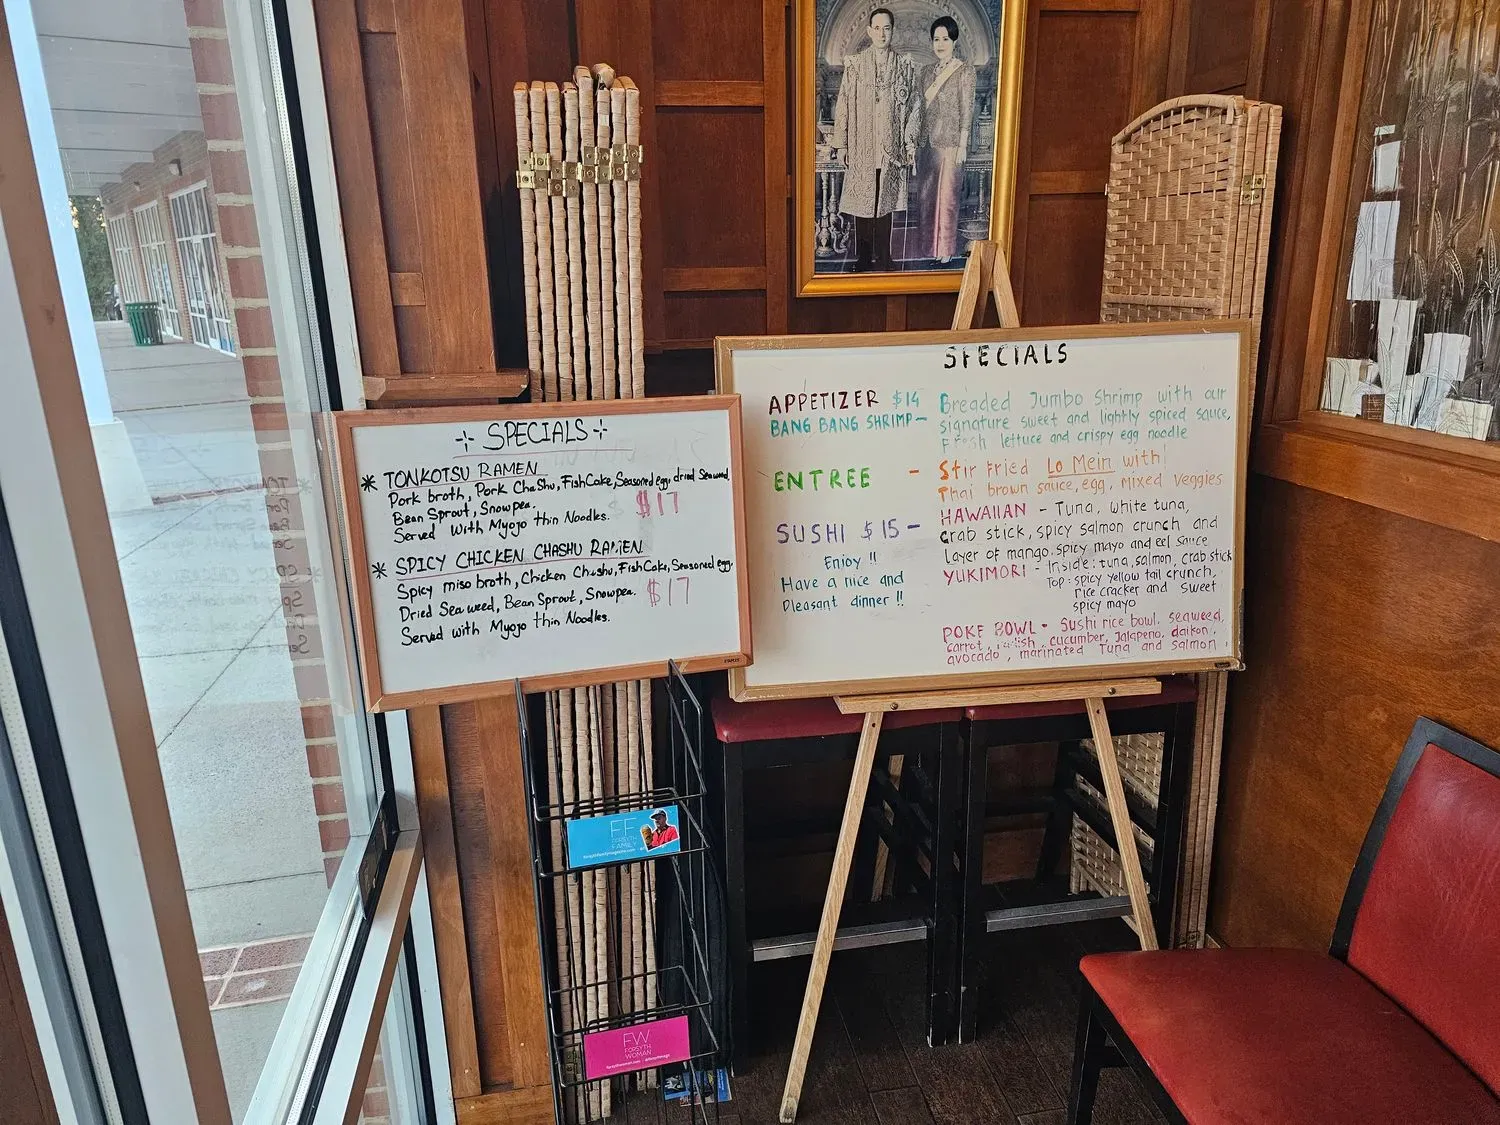 SPECIALS
* TONKOTSU RAMEN
Pork broth, Pork Chashu, FishCake, Seasoned egg, dried Seaweed,
Bean Sprout, Snowpea.
Served with Myojo thin Noodles.
$17
* SPICY CHICKEN CHASHU RAMEN
Spicy miso broth, Chicken Chashu, FishCake, Seasoned egg,
Dried Seaweed, Bean Sprout, Snowpea.
$17
Served with Myojo thin Noodles.
SPECIALS
APPETIZER $14
BANG BANG SHRIMP -
Breaded Jumbo Shrimp with our
signature sweet and lightly spiced sauce,
Fresh lettuce and crispy egg noodle
ENTREE -
Stir Fried Lo Mein with!
Thai brown sauce, egg, Mixed Veggies
SUSHI $15 -
HAWAIIAN - Tuna, white tuna,
crab stick, spicy salmon crunch and
layer of mango, spicy mayo and eel sauce
YUKIMORI - Inside: tuna, salmon, crab stick
Top: spicy yellow tail crunch,
rice cracker and sweet
spicy mayo
POKE BOWL - Sushi rice bowl, seaweed,
carrot, cucumber, Jalapeno, daikon,
avocado, marinated Tuna and salmon
Enjoy !!
Have a nice and
Pleasant dinner !!
FF
FORSYTH
FAMILY
FW
FORSYTH
WOMAN